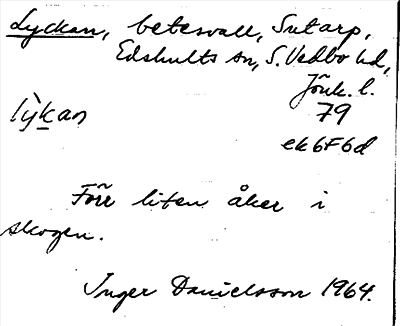 Lyckan, betesvall, Sutarp,
Edshults sn, S. Vedbo hd,
Jönk. l.
lỳkan 79
ek6F6d
Förr liten åker i
skogen.
Inger Danielsson 1964.